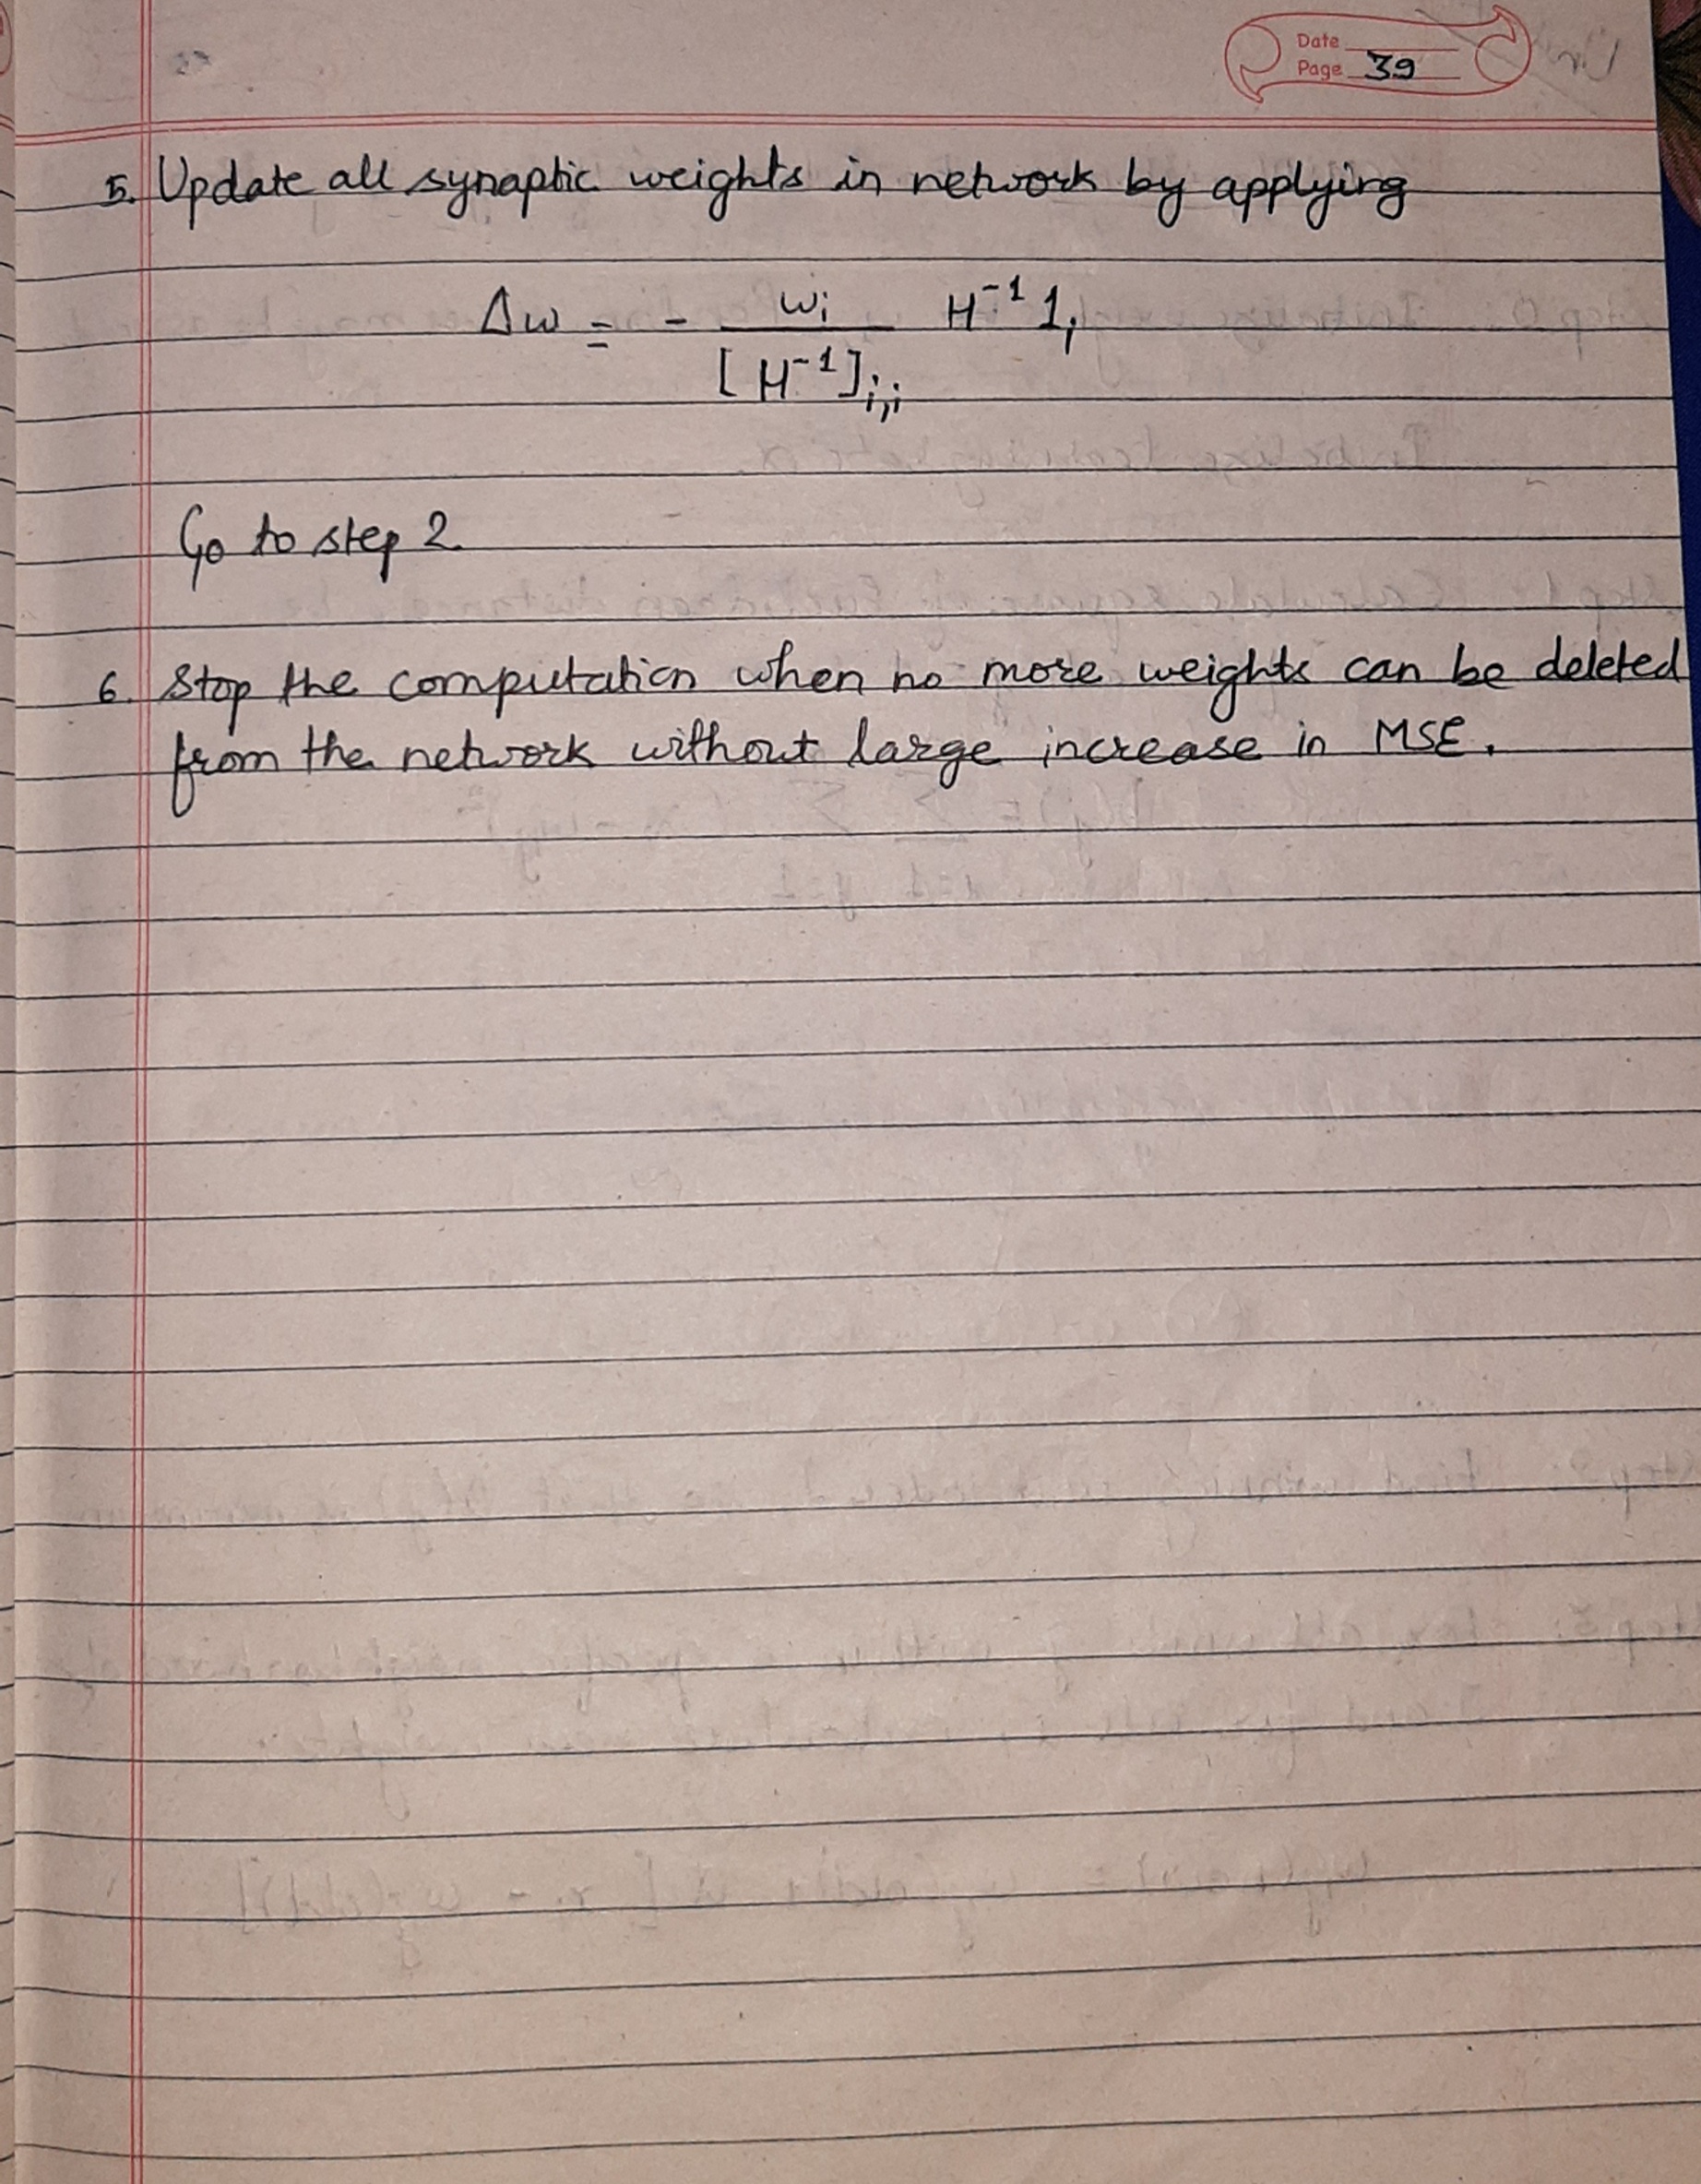 Date
Page 39
5. Update all synaptic weights in network by applying
Δw = - wi / [H⁻¹]i,i H⁻¹ 1i
Go to step 2
6. Stop the computation when no more weights can be deleted
from the network without large increase in MSE.